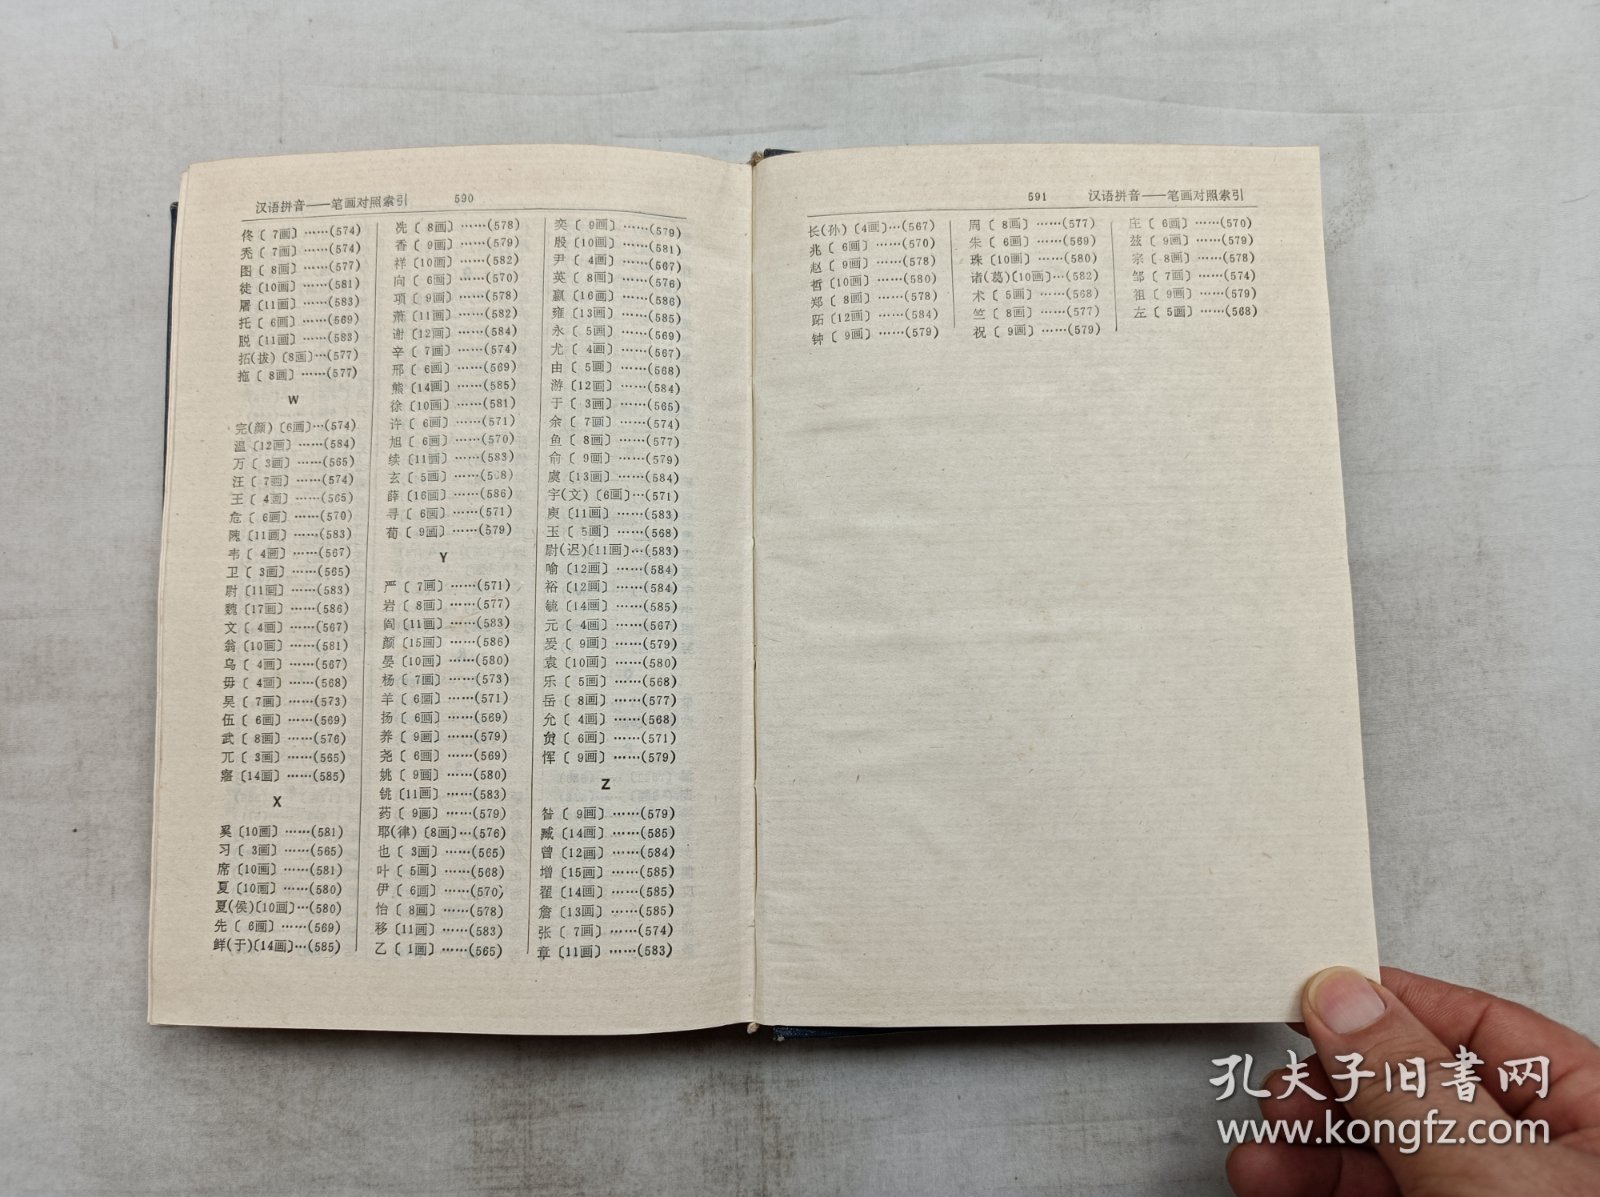 汉语拼音——笔画对照索引 590
佟〔 7画〕……(574)
秃〔 7画〕……(574)
图〔 8画〕……(577)
徒〔10画〕……(581)
屠〔11画〕……(583)
托〔 6画〕……(569)
脱〔11画〕……(583)
拓(拔)〔8画〕…(577)
拖〔 8画〕……(577)
W
完(颜)〔6画〕…(574)
温〔12画〕……(584)
万〔 3画〕……(565)
汪〔 7画〕……(574)
王〔 4画〕……(565)
危〔 6画〕……(570)
隗〔11画〕……(583)
韦〔 4画〕……(567)
卫〔 3画〕……(565)
尉〔11画〕……(583)
魏〔17画〕……(586)
文〔 4画〕……(567)
翁〔10画〕……(581)
乌〔 4画〕……(567)
毋〔 4画〕……(568)
吴〔 7画〕……(573)
伍〔 6画〕……(569)
武〔 8画〕……(576)
兀〔 3画〕……(565)
寤〔14画〕……(585)
X
奚〔10画〕……(581)
习〔 3画〕……(565)
席〔10画〕……(581)
夏〔10画〕……(580)
夏(侯)〔10画〕…(580)
先〔 6画〕……(569)
鲜(于)〔14画〕…(585)
冼〔 8画〕……(578)
香〔 9画〕……(579)
祥〔10画〕……(582)
向〔 6画〕……(570)
项〔 9画〕……(578)
萧〔11画〕……(582)
谢〔12画〕……(584)
辛〔 7画〕……(574)
邢〔 6画〕……(569)
熊〔14画〕……(585)
徐〔10画〕……(581)
许〔 6画〕……(571)
旭〔 6画〕……(570)
续〔11画〕……(583)
玄〔 5画〕……(568)
薛〔16画〕……(586)
寻〔 6画〕……(571)
荀〔 9画〕……(579)
Y
严〔 7画〕……(571)
岩〔 8画〕……(577)
阎〔11画〕……(583)
颜〔15画〕……(586)
晏〔10画〕……(580)
杨〔 7画〕……(573)
羊〔 6画〕……(571)
扬〔 6画〕……(569)
养〔 9画〕……(579)
尧〔 6画〕……(569)
姚〔 9画〕……(580)
铫〔11画〕……(583)
药〔 9画〕……(579)
耶(律)〔8画〕…(576)
也〔 3画〕……(565)
叶〔 5画〕……(568)
伊〔 6画〕……(570)
怡〔 8画〕……(578)
移〔11画〕……(583)
乙〔 1画〕……(565)
奕〔 9画〕……(579)
殷〔10画〕……(581)
尹〔 4画〕……(567)
英〔 8画〕……(576)
嬴〔16画〕……(586)
雍〔13画〕……(585)
永〔 5画〕……(569)
尤〔 4画〕……(567)
由〔 5画〕……(568)
游〔12画〕……(584)
于〔 3画〕……(565)
余〔 7画〕……(574)
鱼〔 8画〕……(577)
俞〔 9画〕……(579)
虞〔13画〕……(584)
宇(文)〔6画〕…(571)
庾〔11画〕……(583)
玉〔 5画〕……(568)
尉(迟)〔11画〕…(583)
喻〔12画〕……(584)
裕〔12画〕……(584)
毓〔14画〕……(585)
元〔 4画〕……(567)
爰〔 9画〕……(579)
袁〔10画〕……(580)
乐〔 5画〕……(568)
岳〔 8画〕……(577)
允〔 4画〕……(568)
贠〔 6画〕……(571)
恽〔 9画〕……(579)
Z
昝〔 9画〕……(579)
臧〔14画〕……(585)
曾〔12画〕……(584)
增〔15画〕……(585)
翟〔14画〕……(585)
詹〔13画〕……(585)
张〔 7画〕……(574)
章〔11画〕……(583)
591 汉语拼音——笔画对照索引
长(孙)〔4画〕…(567)
兆〔 6画〕……(570)
赵〔 9画〕……(578)
哲〔10画〕……(580)
郑〔 8画〕……(578)
跖〔12画〕……(584)
钟〔 9画〕……(579)
周〔 8画〕……(577)
朱〔 6画〕……(569)
珠〔10画〕……(580)
诸(葛)〔10画〕…(582)
术〔 5画〕……(568)
竺〔 8画〕……(577)
祝〔 9画〕……(579)
庄〔 6画〕……(570)
兹〔 9画〕……(579)
宗〔 8画〕……(578)
邹〔 7画〕……(574)
祖〔 9画〕……(579)
左〔 5画〕……(568)
孔夫子旧书网
www.kongfz.com